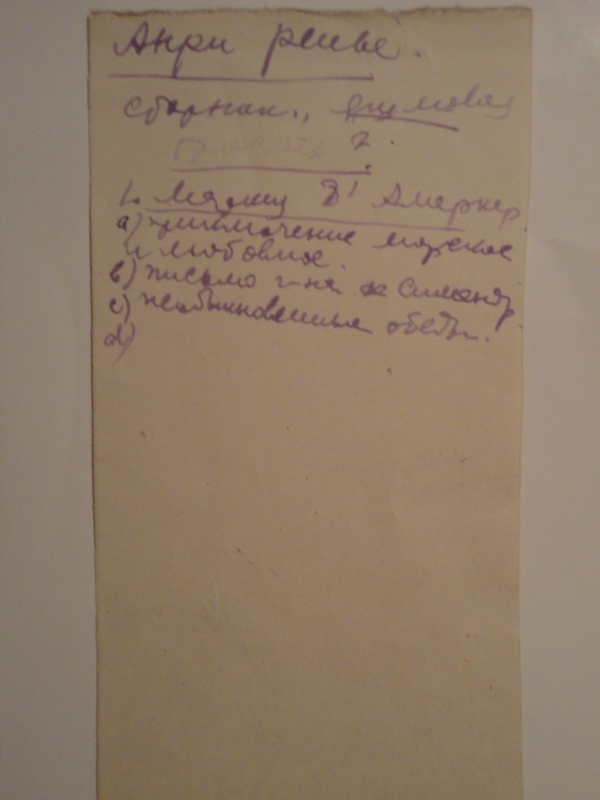 Анри ренье.
сборник.,
трость ?
1. Маркиз д' Амеркер
a) приключение морское
и любовное.
b) письмо г-на де Симандр.
c) необыкновенные обеды.
d)